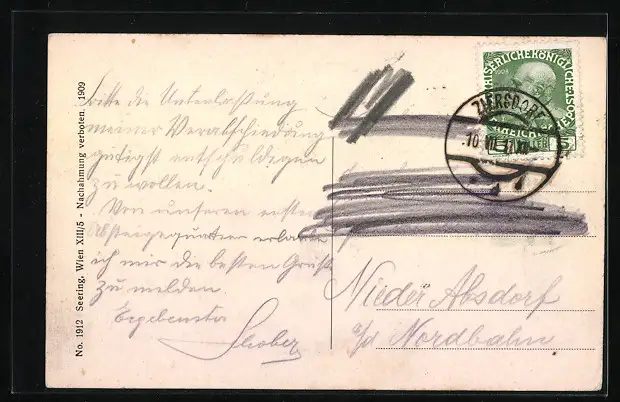 Bitte die Unterlaßung
meiner Verabschiedung
gütigst entschuldigen
zu wollen.
Von unseren ersten
Absteigequartier erlaube
ich mir die besten Grüße
zu melden.
Ergebenster
Nieder Absdorf
a/d Nordbahn
No. 1912 Seering, Wien XIII/5 - Nachahmung verboten. 1909
KAISERLICHEKÖNIGLICHEÖSTE
1908
5
ZIERSDORF